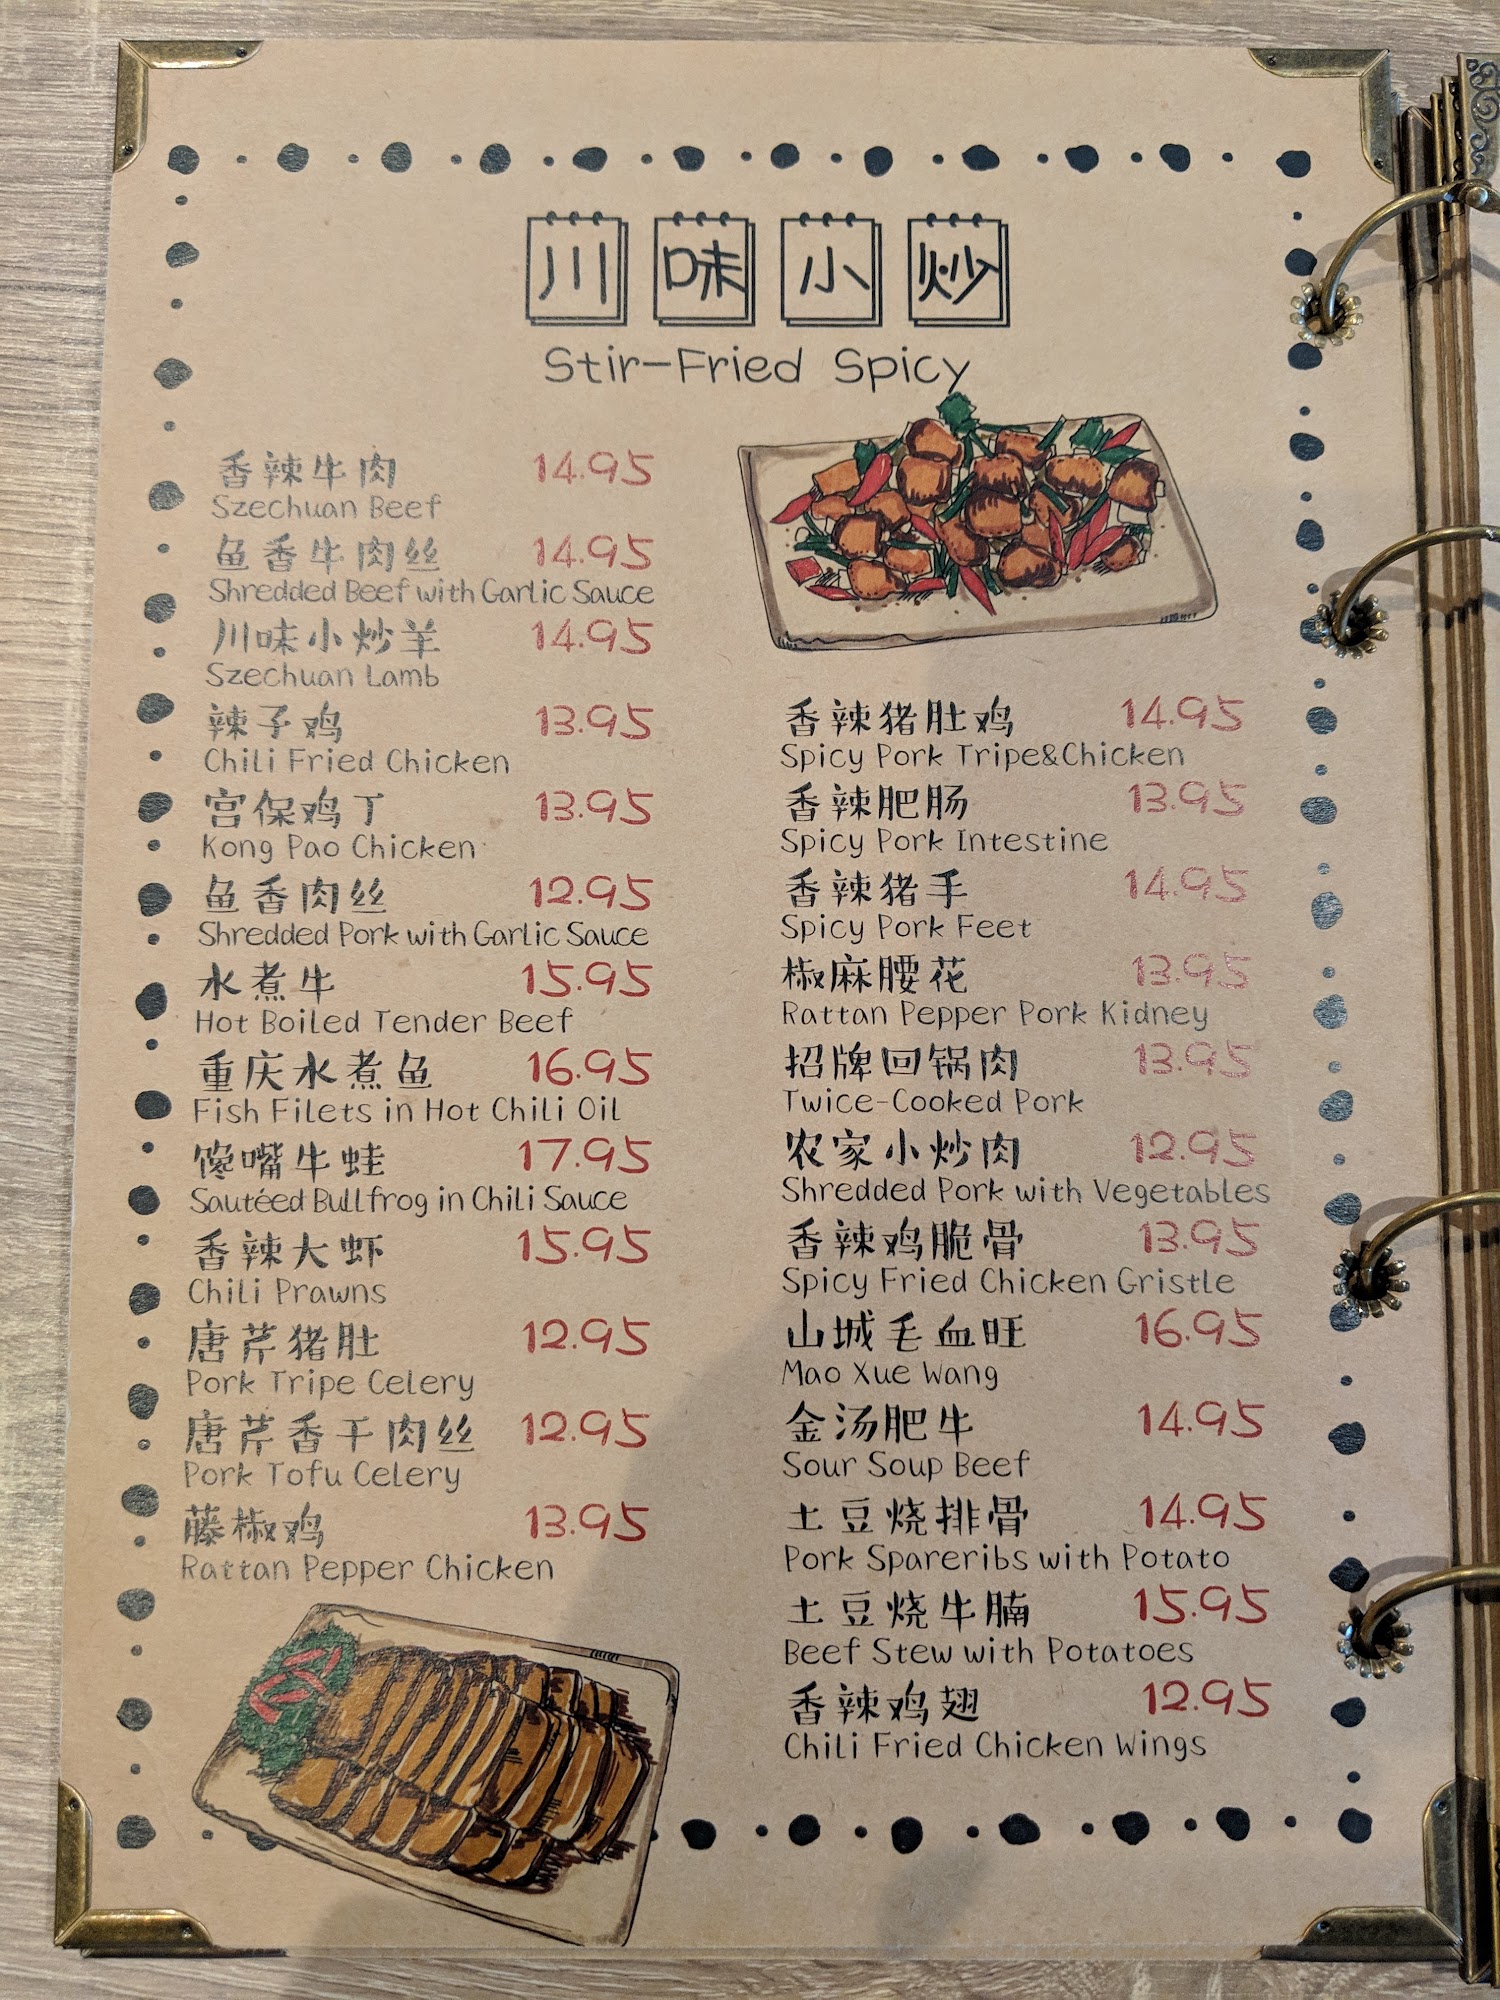 川味小炒
Stir-Fried Spicy
香辣牛肉 14.95
Szechuan Beef
鱼香牛肉丝 14.95
Shredded Beef with Garlic Sauce
川味小炒羊 14.95
Szechuan Lamb
辣子鸡 13.95
Chili Fried Chicken
宫保鸡丁 13.95
Kong Pao Chicken
鱼香肉丝 12.95
Shredded Pork with Garlic Sauce
水煮牛 15.95
Hot Boiled Tender Beef
重庆水煮鱼 16.95
Fish Filets in Hot Chili Oil
馋嘴牛蛙 17.95
Sautéed Bullfrog in Chili Sauce
香辣大虾 15.95
Chili Prawns
唐芹猪肚 12.95
Pork Tripe Celery
唐芹香干肉丝 12.95
Pork Tofu Celery
藤椒鸡 13.95
Rattan Pepper Chicken
香辣猪肚鸡 14.95
Spicy Pork Tripe&Chicken
香辣肥肠 13.95
Spicy Pork Intestine
香辣猪手 14.95
Spicy Pork Feet
椒麻腰花 13.95
Rattan Pepper Pork Kidney
招牌回锅肉 13.95
Twice-Cooked Pork
农家小炒肉 12.95
Shredded Pork with Vegetables
香辣鸡脆骨 13.95
Spicy Fried Chicken Gristle
山城毛血旺 16.95
Mao Xue Wang
金汤肥牛 14.95
Sour Soup Beef
土豆烧排骨 14.95
Pork Spareribs with Potato
土豆烧牛腩 15.95
Beef Stew with Potatoes
香辣鸡翅 12.95
Chili Fried Chicken Wings